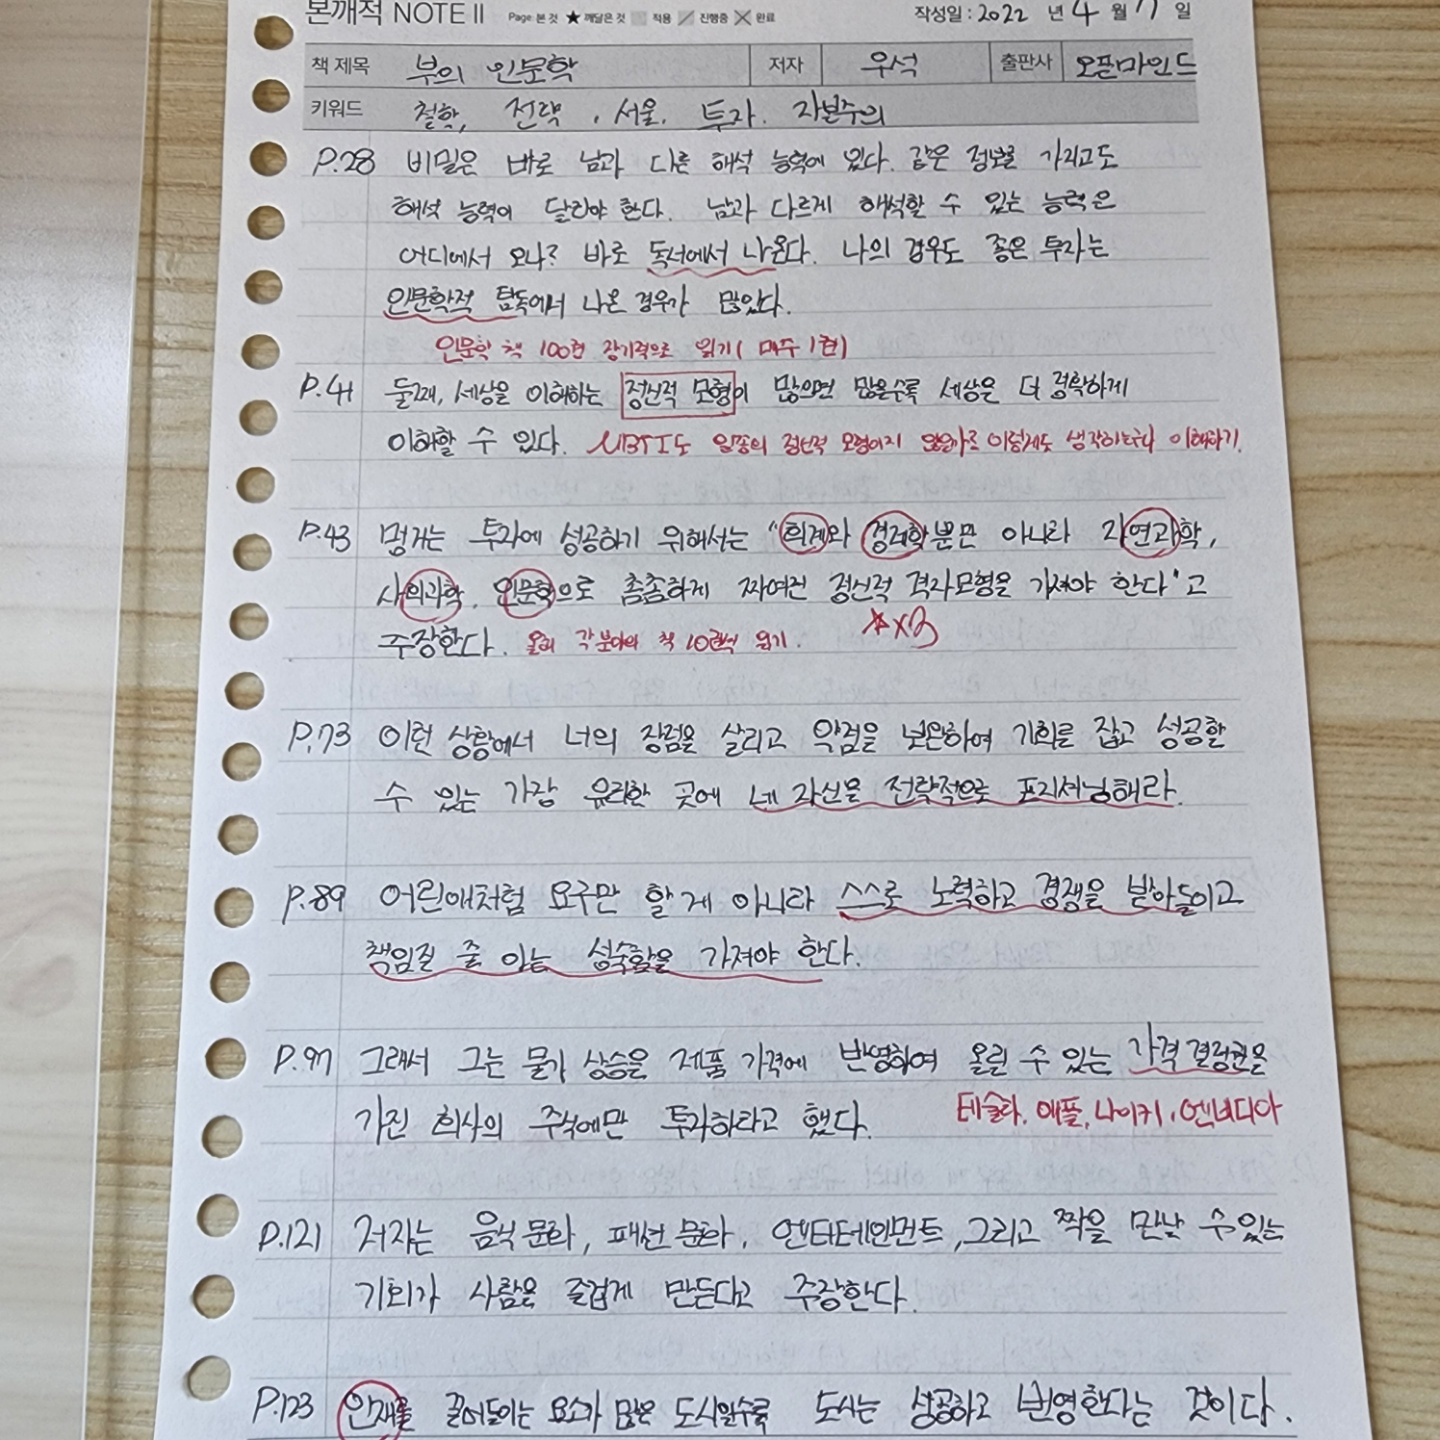 본깨적 NOTE II Page 본 것 ★ 깨달은 것 적용 진행중 완료 작성일 : 2022 년 4 월 일
책 제목 부의 인문학 저자 우석 출판사 오픈마인드
키워드 철학, 전략, 서울, 투자, 자본주의
P.28 비밀은 바로 남과 다른 해석 능력에 있다. 같은 정보를 가지고도
해석 능력이 달라야 한다. 남과 다르게 해석할 수 있는 능력은
어디에서 오나? 바로 독서에서 나온다. 나의 경우도 좋은 투자는
인문학적 탐독에서 나온 경우가 많았다.
인문학 책 100권 장기적으로 읽기( 매주 1권)
P.41 둘째, 세상을 이해하는 정신적 모형이 많으면 많을수록 세상을 더 정확하게
이해할 수 있다. MBTI도 일종의 정신적 모형이지 않을까로 이렇게도 생각하는구나 이해하기.
P.43 멍거는 투자에 성공하기 위해서는 "회계와 경제학뿐만 아니라 자연과학,
사회과학, 인문학으로 촘촘하게 짜여진 정신적 격자모형을 가져야 한다"고
주장한다. 올해 각 분야의 책 10권씩 읽기. ★×3
P.73 이런 상황에서 너의 장점을 살리고 약점을 보완하여 기회를 잡고 성공할
수 있는 가장 유리한 곳에 네 자신을 전략적으로 포지셔닝해라.
P.89 어린애처럼 요구만 할 게 아니라 스스로 노력하고 경쟁을 받아들이고
책임질 줄 아는 성숙함을 가져야 한다.
P.97 그래서 그는 물가 상승을 제품 가격에 반영하여 올릴 수 있는 가격 결정권을
가진 회사의 주식에만 투자하라고 했다. 테슬라, 애플, 나이키, 엔비디아
P.121 저자는 음식 문화, 패션 문화, 엔터테인먼트, 그리고 짝을 만날 수 있는
기회가 사람을 즐겁게 만든다고 주장한다.
P.123 인재를 끌어들이는 요소가 많은 도시일수록 도시는 성공하고 번영한다는 것이다.